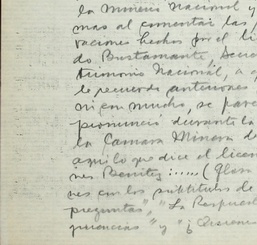 la Minera Nacional y
mas al comentar las
vaciones hechas por el li
do Bustamante, Secre
trimonio Nacional, a q
le recuerdo anteriores
ni con mucho, se parec
pronunció durante la
la Camara Minera de
aqui lo que dice el licen
nes Benitez :.....( Glosa
nes con los subtitulos de
preguntas", "La Respuest
gerencias" y "¿